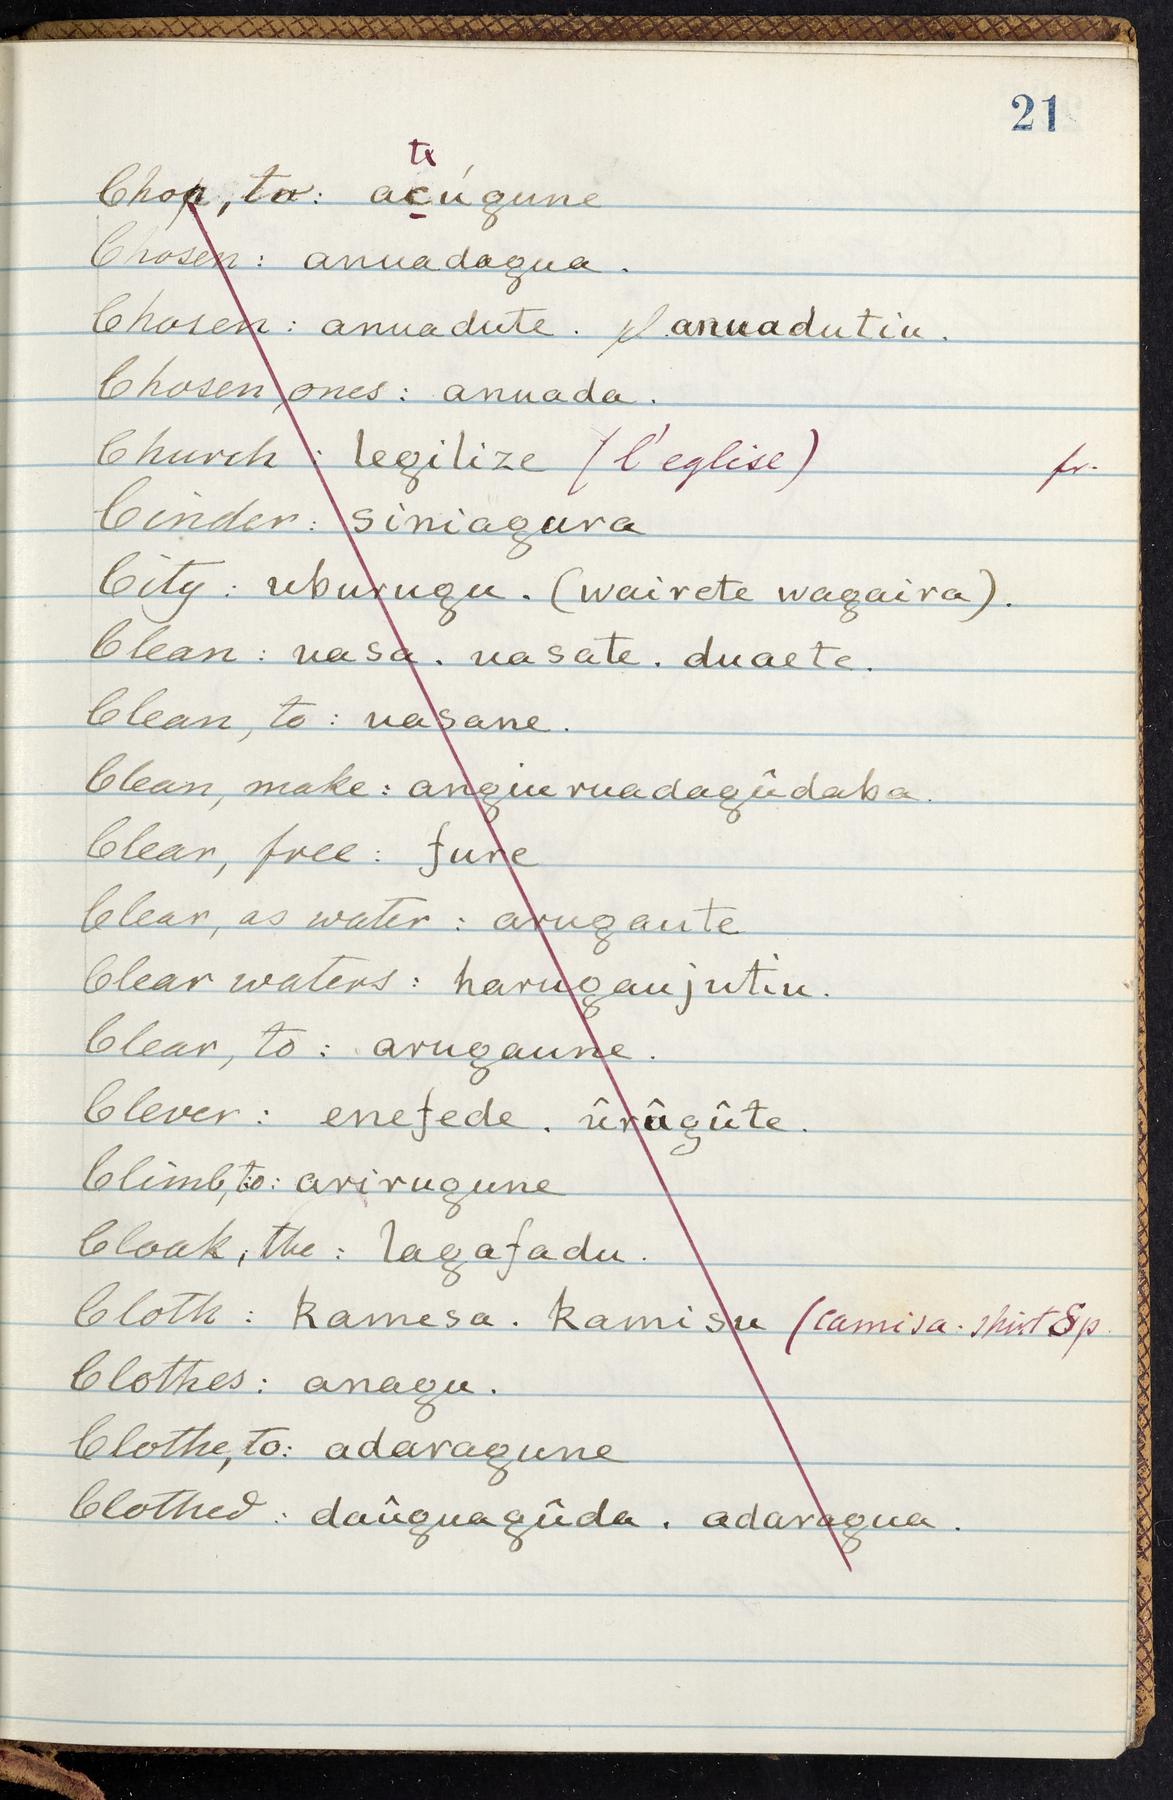 21
tx
Chop, to: acúgune
Chosen: anuadagua.
Chosen: anuadute. pl. anuadutiu.
Chosen, ones: anuada.
Church: legilize (l'eglise) fr.
Cinder: siniagura
City: uburugu. (wairete wagaira).
Clean: uasa. uasate. duaete.
Clean, to: uasane.
Clean, make: angiuruadagûdaba.
Clear, free: fure
Clear, as water: arugaute
Clear waters: harugaujutiu.
Clear, to: arugaune.
Clever: enefede. ûrûgûte.
Climb, to: arirugune
Cloak, the: lagafadu.
Cloth: kamesa. kamisu (camisa. shirt Sp.
Clothes: anagu.
Clothe, to: adaragune
Clothed: daûguagûda. adaragua.